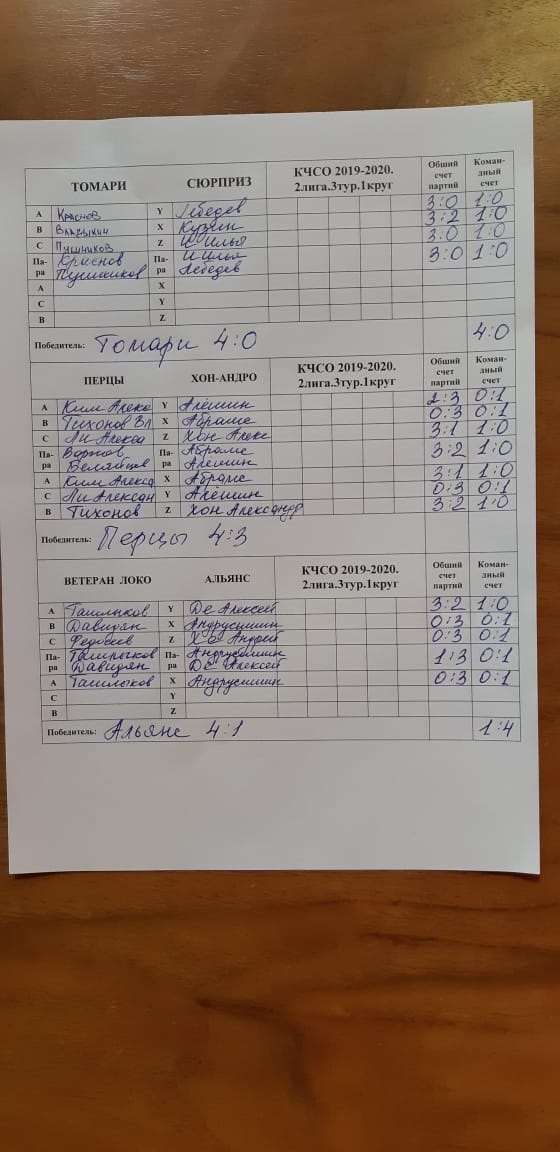 ТОМАРИ СЮРПРИЗ КЧСО 2019-2020. 2лига.3тур.1круг Общий счет партий Коман-дный счет
A Краснов Y Лебедев 3:0 1:0
B Владыкин X Кузин 3:2 1:0
C Пушников Z И Илья 3:0 1:0
Па-ра Краснов Пушников Па-ра И Илья Лебедев 3:0 1:0
A X
C Y
B Z
Победитель: Томари 4:0 4:0
ПЕРЦЫ ХОН-АНДРО КЧСО 2019-2020. 2лига.3тур.1круг Общий счет партий Коман-дный счет
A Ким Алекс Y Алёшин 2:3 0:1
B Тихонов Вл X Абраме 0:3 0:1
C Ли Алекса Z Хон Алекс 3:1 1:0
Па-ра Па-ра Абраме Алешин 3:2 1:0
A Ким Алекса X Абраме 3:1 1:0
C Ли Алексан Y Алёшин 0:3 0:1
B Тихонов Z Хон Александр 3:2 1:0
Победитель: Перцы 4:3
ВЕТЕРАН ЛОКО АЛЬЯНС КЧСО 2019-2020. 2лига.3тур.1круг Общий счет партий Коман-дный счет
A Ташлыков Y Де Алексей 3:2 1:0
B Давидян X Андрусишин 0:3 0:1
C Федосеев Z Хе Андрей 0:3 0:1
Па-ра Ташлыков Давидян Па-ра Андрусишин Де Алексей 1:3 0:1
A Ташлыков X Андрусишин 0:3 0:1
C Y
B Z
Победитель: Альянс 4:1 1:4